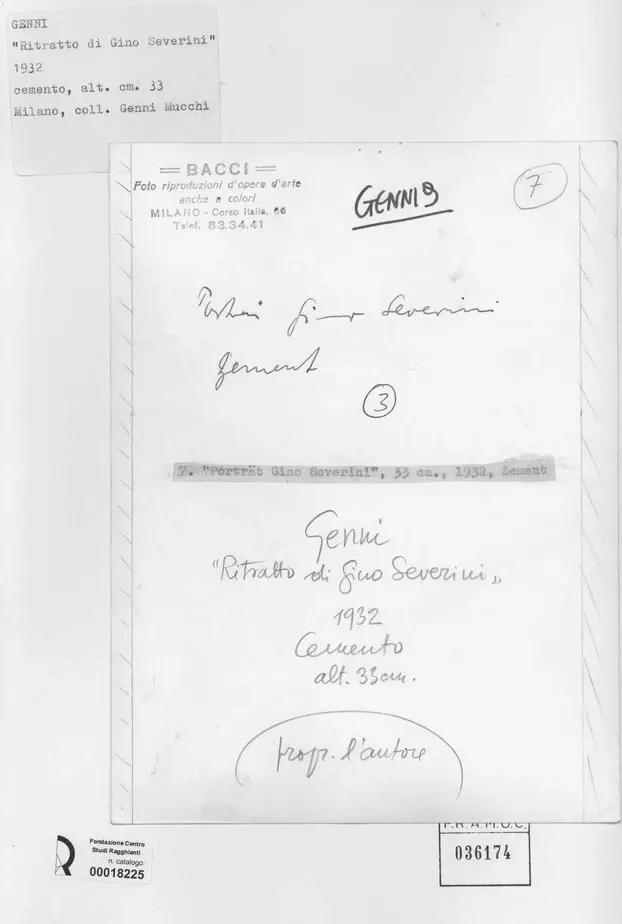 GENNI
"Ritratto di Gino Severini"
1932
cemento, alt. cm. 33
Milano, coll. Genni Mucchi
BACCI
Foto riproduzioni d'opere d'arte
anche a colori
MILANO - Corso Italia, 66
Telef. 83.34.41
GENNI 9
7
Gino Severini
Zement
3
7. "Porträt Gino Severini", 33 cm., 1932, Zement
Genni
"Ritratto di Gino Severini"
1932
Cemento
alt. 33 cm.
propr. l'autore
Fondazione Centro
Studi Ragghianti
n. catalogo:
00018225
F.R.A.M.U.C.
036174